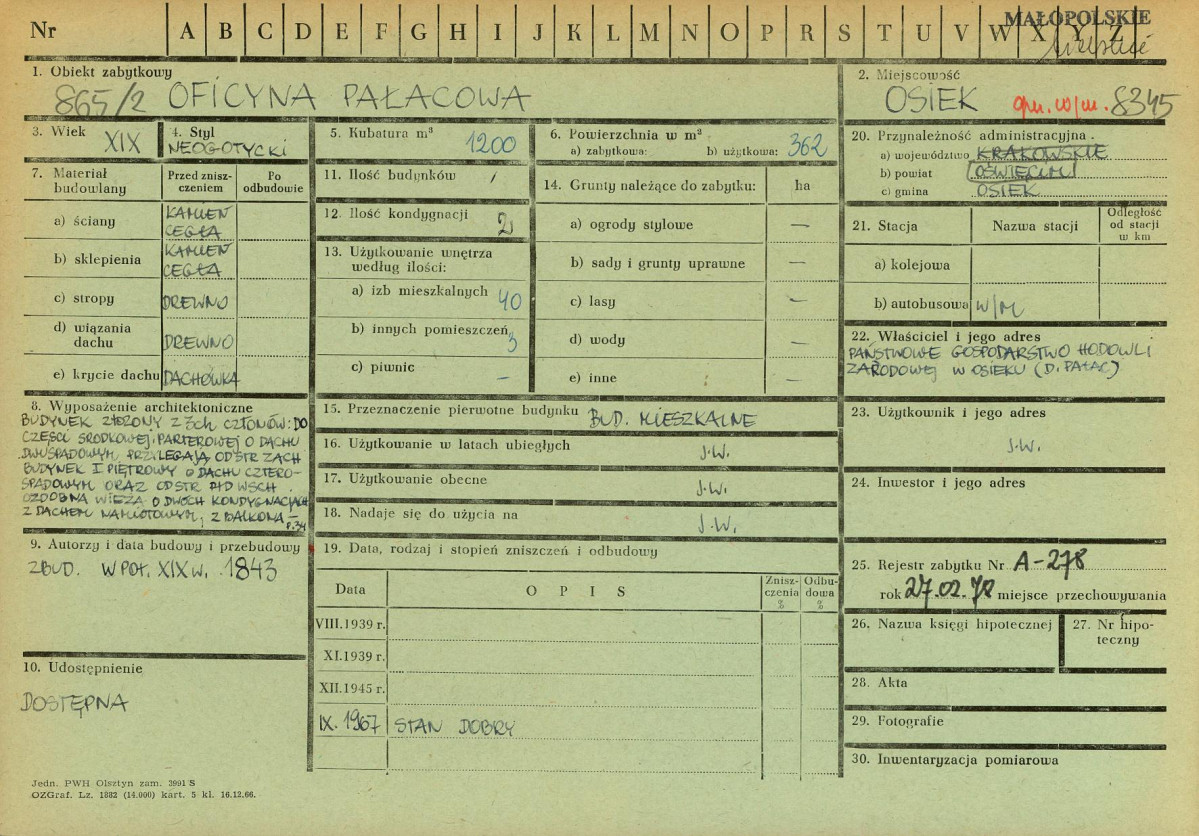 Nr A B C D E F G H I J K L M N O P R S T U V W X Y Z
MAŁOPOLSKIE
1. Obiekt zabytkowy
865/2 OFICYNA PAŁACOWA
2. Miejscowość
OSIEK gm. w/m. 8345
3. Wiek XIX
4. Styl
NEOGOTYCKI
5. Kubatura m³ 1200
6. Powierzchnia w m²
a) zabytkowa: b) użytkowa: 362
7. Materiał budowlany
Przed zniszczeniem
Po odbudowie
a) ściany KAMIEŃ CEGŁA
b) sklepienia KAMIEŃ CEGŁA
c) stropy DREWNO
d) wiązania dachu DREWNO
e) krycie dachu DACHÓWKA
8. Wyposażenie architektoniczne
BUDYNEK ZŁOŻONY Z 3CH CZŁONÓW: DO
CZĘŚCI ŚRODKOWEJ, PARTEROWEJ O DACHU
DWUSPADOWYM PRZYLEGAJĄ OD STR ZACH
BUDYNEK I PIĘTROWY O DACHU CZTERO-
SPADOWYM ORAZ OD STR PŁD WSCH.
OZDOBNA WIEŻA O DWÓCH KONDYGNACJACH
Z DACHEM NAMIOTOWYM, Z BALKONA-
9. Autorzy i data budowy i przebudowy
ZBUD. W POŁ. XIX w. 1843
10. Udostępnienie
DOSTĘPNA
11. Ilość budynków 1
12. Ilość kondygnacji 2
13. Użytkowanie wnętrza według ilości:
a) izb mieszkalnych 40
b) innych pomieszczeń 3
c) piwnic —
14. Grunty należące do zabytku: ha
a) ogrody stylowe —
b) sady i grunty uprawne —
c) lasy —
d) wody —
e) inne —
15. Przeznaczenie pierwotne budynku BUD. MIESZKALNE
16. Użytkowanie w latach ubiegłych J.W.
17. Użytkowanie obecne J.W.
18. Nadaje się do użycia na J.W.
19. Data, rodzaj i stopień zniszczeń i odbudowy
Data OPIS Zniszczenia % Odbudowa %
VIII.1939 r.
XI.1939 r.
XII.1945 r.
IX. 1967 STAN DOBRY
20. Przynależność administracyjna
a) województwo KRAKOWSKIE
b) powiat OŚWIĘCIM
c) gmina OSIEK
21. Stacja Nazwa stacji Odległość od stacji w km
a) kolejowa
b) autobusowa W/M
22. Właściciel i jego adres
PAŃSTWOWE GOSPODARSTWO HODOWLI
ZARODOWEJ W OSIEKU (D. PAŁAC)
23. Użytkownik i jego adres
J.W.
24. Inwestor i jego adres
25. Rejestr zabytku Nr A-278
rok 27.02.78 miejsce przechowywania
26. Nazwa księgi hipotecznej
27. Nr hipoteczny
28. Akta
29. Fotografie
30. Inwentaryzacja pomiarowa
Jedn. PWH Olsztyn zam. 3991 S
OZGraf. Lz. 1882 (14.000) kart. 5 kl. 16.12.66.